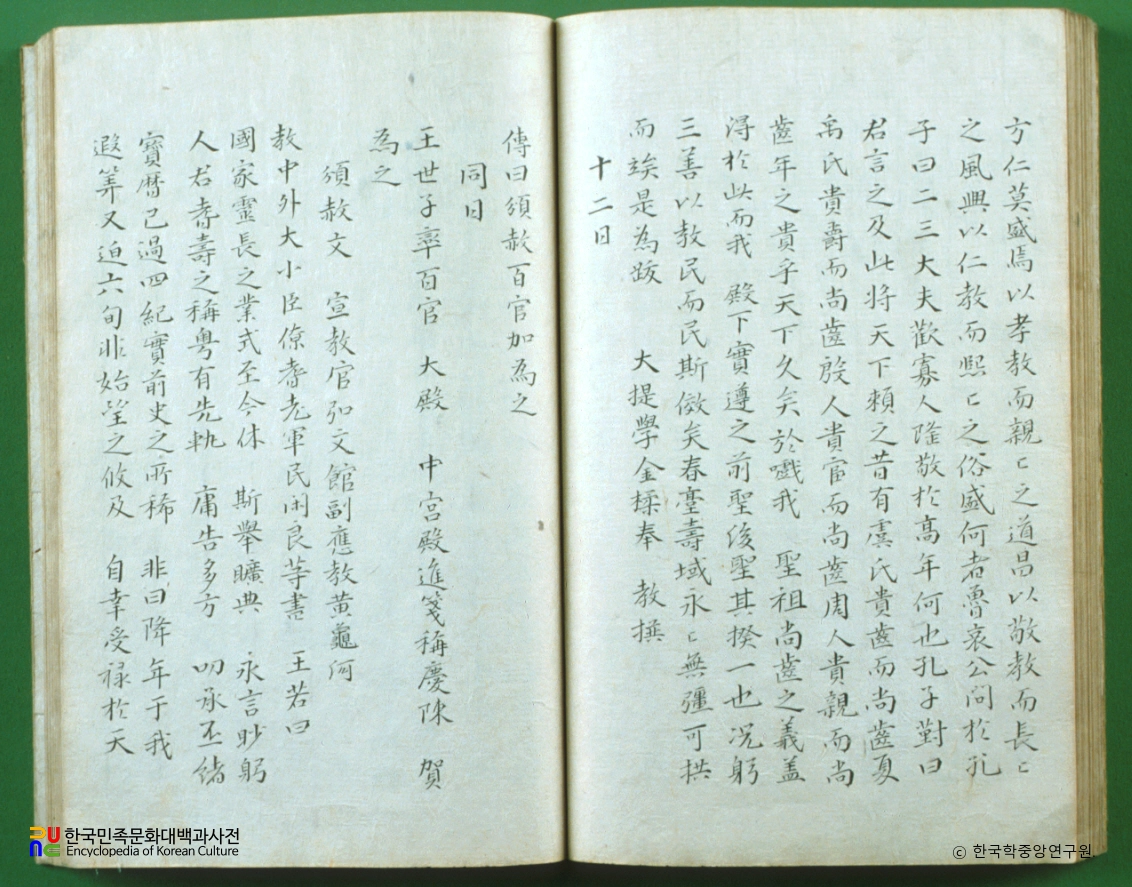 方仁莫盛焉以孝教而親〻之道昌以敬教而長〻
之風興以仁教而熙〻之俗盛何者魯哀公問於孔
子曰二三大夫歡寡人隆敬於高年何也孔子對曰
君言之及此將天下賴之昔有虞氏貴齒而尚齒夏
禹氏貴爵而尚齒殷人貴富而尚齒周人貴親而尚
齒年之貴乎天下久矣於戲我 聖祖尚齒之義盖
淂於此而我 殿下實遵之前聖後聖其揆一也况躬
三善以教民而民斯倣矣春臺壽域永〻無疆可拱
而竢是為跋 大提學金楺奉 教撰
十二日
傳曰頒赦百官加為之
同日
王世子率百官 大殿 中宮殿進箋稱慶陳 賀
為之
頒赦文 宣教官弘文館副應教黃龜河
教中外大小臣僚耆老軍民閑良等書 王若曰
國家靈長之業式至今休 斯舉曠典 永言眇躬
人君耆壽之稱粤有先軌 庸告多方 叨承丕緖
寶曆已過四紀實前史之所稀 非曰降年于我
遐筭又迫六旬非始望之攸及 自幸受祿於天
한국민족문화대백과사전
Encyclopedia of Korean Culture
© 한국학중앙연구원